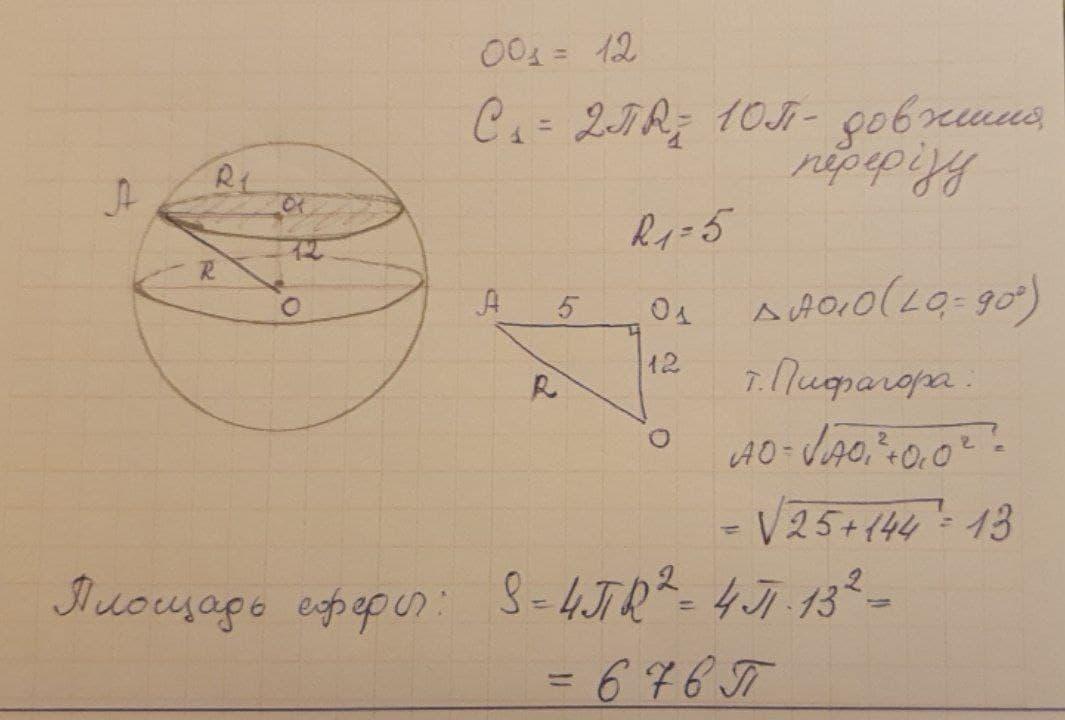 OO₁ = 12
C₁ = 2πR₁ = 10π - довжина
перерізу
R₁ = 5
A
R₁
O₁
12
R
O
A 5 O₁
12
R
O
△ AO₁O (∠O₁ = 90°)
т. Пифагора:
AO = √AO₁² + O₁O² =
= √25 + 144 = 13
Площадь сферы: S = 4πR² = 4π · 13² =
= 676π